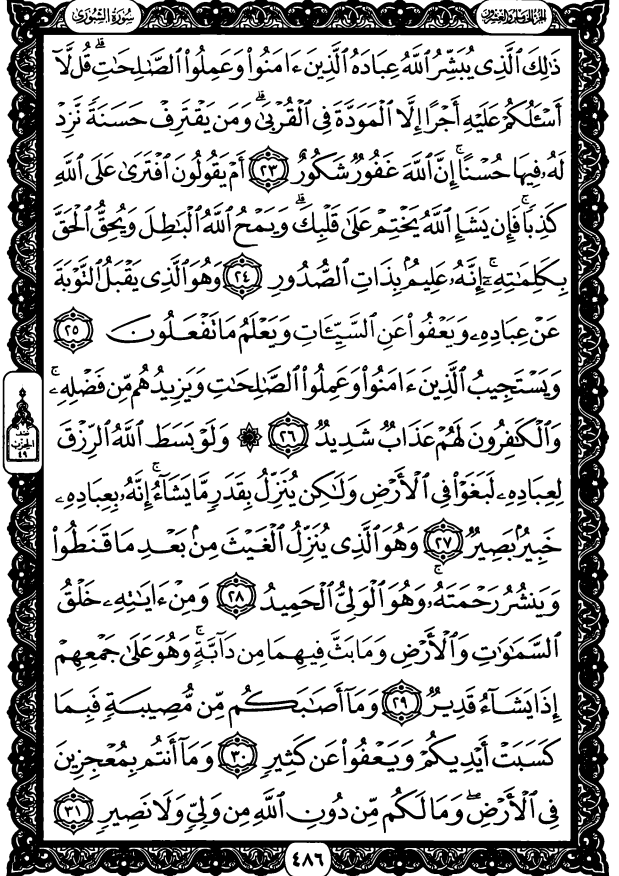 الجزء الخامس والعشرون
سُورَةُ الشُّورَىٰ
ذَٰلِكَ ٱلَّذِى يُبَشِّرُ ٱللَّهُ عِبَادَهُ ٱلَّذِينَ ءَامَنُوا۟ وَعَمِلُوا۟ ٱلصَّـٰلِحَـٰتِ ۗ قُل لَّآ
أَسْـَٔلُكُمْ عَلَيْهِ أَجْرًا إِلَّا ٱلْمَوَدَّةَ فِى ٱلْقُرْبَىٰ ۗ وَمَن يَقْتَرِفْ حَسَنَةً نَّزِدْ
لَهُۥ فِيهَا حُسْنًا ۚ إِنَّ ٱللَّهَ غَفُورٌ شَكُورٌ ٢٣ أَمْ يَقُولُونَ ٱفْتَرَىٰ عَلَى ٱللَّهِ
كَذِبًا ۖ فَإِن يَشَإِ ٱللَّهُ يَخْتِمْ عَلَىٰ قَلْبِكَ ۗ وَيَمْحُ ٱللَّهُ ٱلْبَـٰطِلَ وَيُحِقُّ ٱلْحَقَّ
بِكَلِمَـٰتِهِۦٓ ۚ إِنَّهُۥ عَلِيمٌۢ بِذَاتِ ٱلصُّدُورِ ٢٤ وَهُوَ ٱلَّذِى يَقْبَلُ ٱلتَّوْبَةَ
عَنْ عِبَادِهِۦ وَيَعْفُوا۟ عَنِ ٱلسَّيِّـَٔاتِ وَيَعْلَمُ مَا تَفْعَلُونَ ٢٥
وَيَسْتَجِيبُ ٱلَّذِينَ ءَامَنُوا۟ وَعَمِلُوا۟ ٱلصَّـٰلِحَـٰتِ وَيَزِيدُهُم مِّن فَضْلِهِۦ ۚ
وَٱلْكَـٰفِرُونَ لَهُمْ عَذَابٌ شَدِيدٌ ٢٦ ۞ وَلَوْ بَسَطَ ٱللَّهُ ٱلرِّزْقَ
لِعِبَادِهِۦ لَبَغَوْا۟ فِى ٱلْأَرْضِ وَلَـٰكِن يُنَزِّلُ بِقَدَرٍ مَّا يَشَآءُ ۚ إِنَّهُۥ بِعِبَادِهِۦ
خَبِيرٌۢ بَصِيرٌ ٢٧ وَهُوَ ٱلَّذِى يُنَزِّلُ ٱلْغَيْثَ مِنۢ بَعْدِ مَا قَنَطُوا۟
وَيَنشُرُ رَحْمَتَهُۥ ۚ وَهُوَ ٱلْوَلِىُّ ٱلْحَمِيدُ ٢٨ وَمِنْ ءَايَـٰتِهِۦ خَلْقُ
ٱلسَّمَـٰوَٰتِ وَٱلْأَرْضِ وَمَا بَثَّ فِيهِمَا مِن دَآبَّةٍ ۚ وَهُوَ عَلَىٰ جَمْعِهِمْ
إِذَا يَشَآءُ قَدِيرٌ ٢٩ وَمَآ أَصَـٰبَكُم مِّن مُّصِيبَةٍ فَبِمَا
كَسَبَتْ أَيْدِيكُمْ وَيَعْفُوا۟ عَن كَثِيرٍ ٣٠ وَمَآ أَنتُم بِمُعْجِزِينَ
فِى ٱلْأَرْضِ ۖ وَمَا لَكُم مِّن دُونِ ٱللَّهِ مِن وَلِىٍّ وَلَا نَصِيرٍ ٣١
الحزب
٤٩
٤٨٦